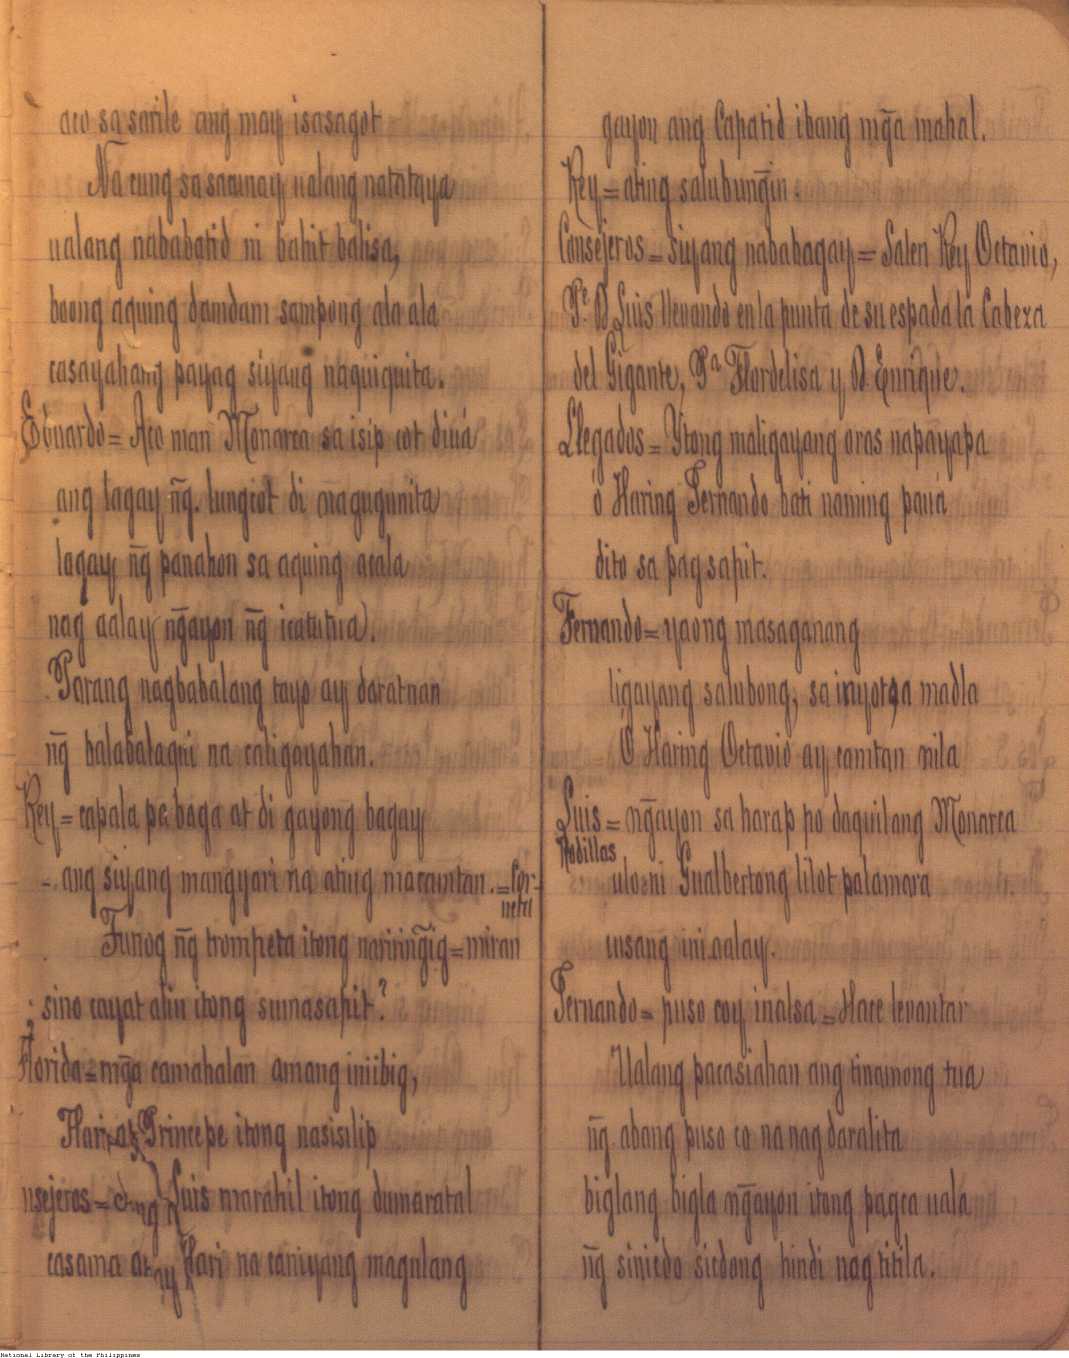 aco sa sarile ang may isasagot
Na cung sa sacunay ualang natataya
ualang nababatid ni bahit balisa,
boong aquing damdam sampong ala ala
casayahang payag siyang naquiquita.
Eduardo = Aco man Monarca sa isip cot diua
ang lagay ñg. tungcot di magugunita
lagay ñg panahon sa aquing acala
nag aalay ñgayon ñg icatutua.
Parang nagbabalang tayo ay daratnan
ñg balabalaqui na caligayahan.
Rey = capala pa baga at di gayong bagay
ang siyang mangyari na ating macamtan. = Cor-
neta
Tunog ñg trompeta itong naririñgig = miran
¿ sino cayat alin itong sumasapit?
Florida = mg̃a camahalan amang iniibig,
Hari at Principe itong nasisilip
nsejeros = ang Luis marahil itong dumaratal
casama at ay Hari na caniyang magulang
gayon ang Capatid ibang mg̃a mahal.
Rey = ating salubuñgin.
Consejeros = siyang nababagay = Salen Rey Octavio,
Pe. D Luis llevando en la punta de su espada la Cabeza
del Gigante, Pa Flordelisa y D Enrique.
Llegados = Ytong maligayang oras napayapa
ó Haring Fernando bati naming pauá
dito sa pag sapit.
Fernando = yaong masaganang
ligayang salubong, sa inyot sa madla
O Haring Octavio ay camtan nila
Luis = ñgayon sa harap po daquilang Monarca
Rodillas
ulo ni Gualbertong lilot palamara
cusang ini aalay.
Fernando = puso coy inalsa = Hace levantar
Ualang pacasiahan ang tinamong tua
ñg abang puso co na nag daralita
biglang bigla ñgayon itong pagca uala
ñg sinicdo sicdong hindi nag titila.